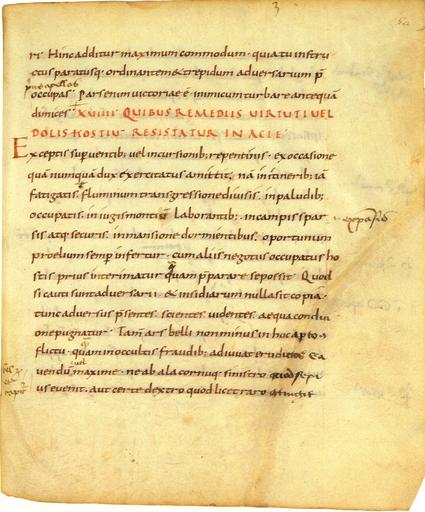 3
ri. Hinc additur maximum commodum. quia tu instru
ctus paratusq; ordinantem & trepidum aduersarium p̄
occupas. Pars enim uictoriæ ē. inimicum turbare antequā
dimices. XVIIII QUIBUS REMEDIIS UIRTUTI UEL
DOLIS HOSTIŪ RESISTATUR IN ACIE
Exceptis superuentib; uel incursionib; repentinis. ex occasione
quā numquā dux exercitatus amittit. nā in itinerib; iā
fatigatis. fluminum transgressione diuisis. in paludib;
occupatis. in iugis montiū laborantib;. in campis spar
sis atq; securis. in mansione dormientibus. oportunum
proelium semp infertur. cum aliis negotiis occupatus ho
stis prius interimatur quam pparare se possit. Quod
si cauti sunt aduersarii. & insidiarum nulla sit copia.
tunc aduersus p̄sentes. scientes. uidentes. aequa condici
one pugnatur. Tam ars belli non minus in hoc aperto
flictu. quam in occultis fraudib; adiuuat eruditos. Ca
uendū maxime. ne ab ala cornuq; sinistro quod sepi
us euenit. aut certe dextro quod licet raro